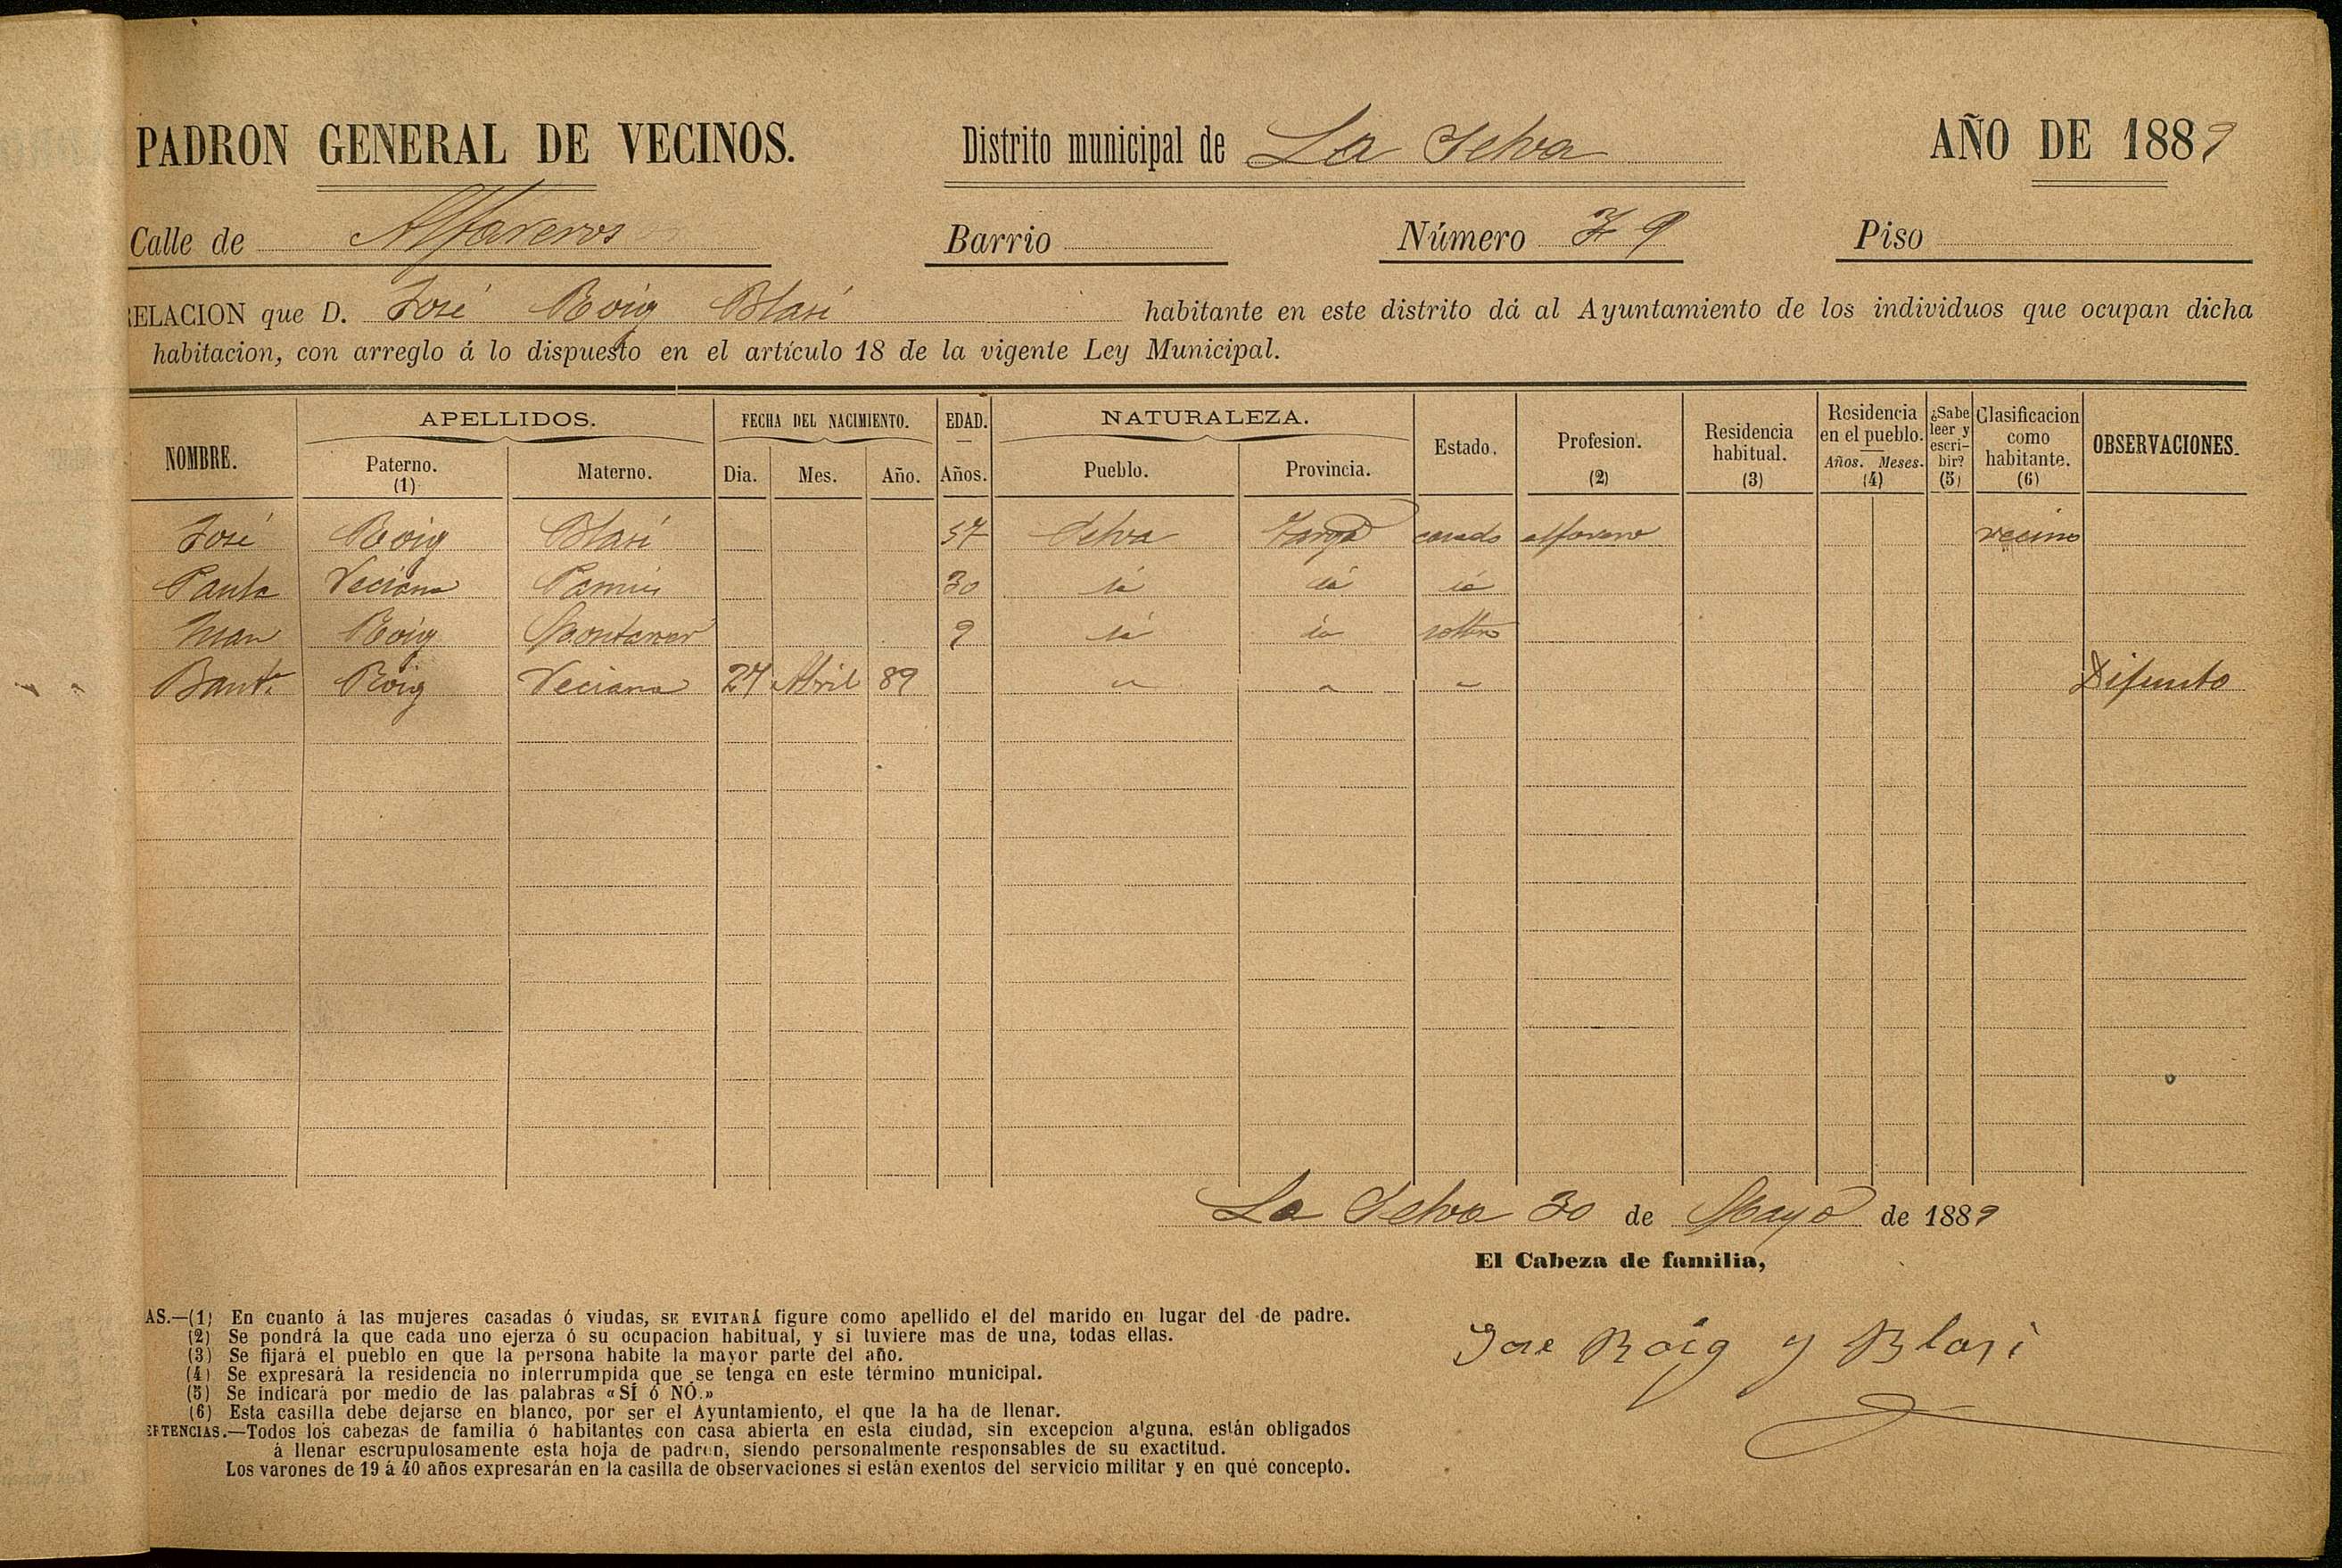 PADRON GENERAL DE VECINOS. Distrito municipal de La Selva AÑO DE 1889
Calle de Alfareros Barrio Número 79 Piso
RELACION que D. José Roig Blasi habitante en este distrito dá al Ayuntamiento de los individuos que ocupan dicha
habitacion, con arreglo á lo dispuesto en el artículo 18 de la vigente Ley Municipal.
NOMBRE. APELLIDOS. Paterno. (1) Materno. FECHA DEL NACIMIENTO. Dia. Mes. Año. EDAD. Años. NATURALEZA. Pueblo. Provincia. Estado. Profesion. (2) Residencia habitual. (3) Residencia en el pueblo. Años. Meses. (4) ¿Sabe leer y escri- bir? (5) Clasificacion como habitante. (6) OBSERVACIONES.
José Roig Blasi 57 Selva Targª casado alfarero vecino
Paula Veciana Pamies 30 id id id
Juan Roig Montaner 9 id id soltero
Baut.ª Roig Veciana 27 Abril 89 " " " Difunto
La Selva 30 de Mayo de 1889
El Cabeza de familia,
Jose Roig y Blasi
AS.—(1) En cuanto á las mujeres casadas ó viudas, SE EVITARÁ figure como apellido el del marido en lugar del de padre.
(2) Se pondrá la que cada uno ejerza ó su ocupacion habitual, y si tuviere mas de una, todas ellas.
(3) Se fijará el pueblo en que la persona habite la mayor parte del año.
(4) Se expresará la residencia no interrumpida que se tenga en este término municipal.
(5) Se indicará por medio de las palabras «SÍ ó NÓ.»
(6) Esta casilla debe dejarse en blanco, por ser el Ayuntamiento, el que la ha de llenar.
ERTENCIAS.—Todos los cabezas de familia ó habitantes con casa abierta en esta ciudad, sin excepcion alguna, están obligados
á llenar escrupulosamente esta hoja de padron, siendo personalmente responsables de su exactitud.
Los varones de 19 á 40 años expresarán en la casilla de observaciones si están exentos del servicio militar y en qué concepto.